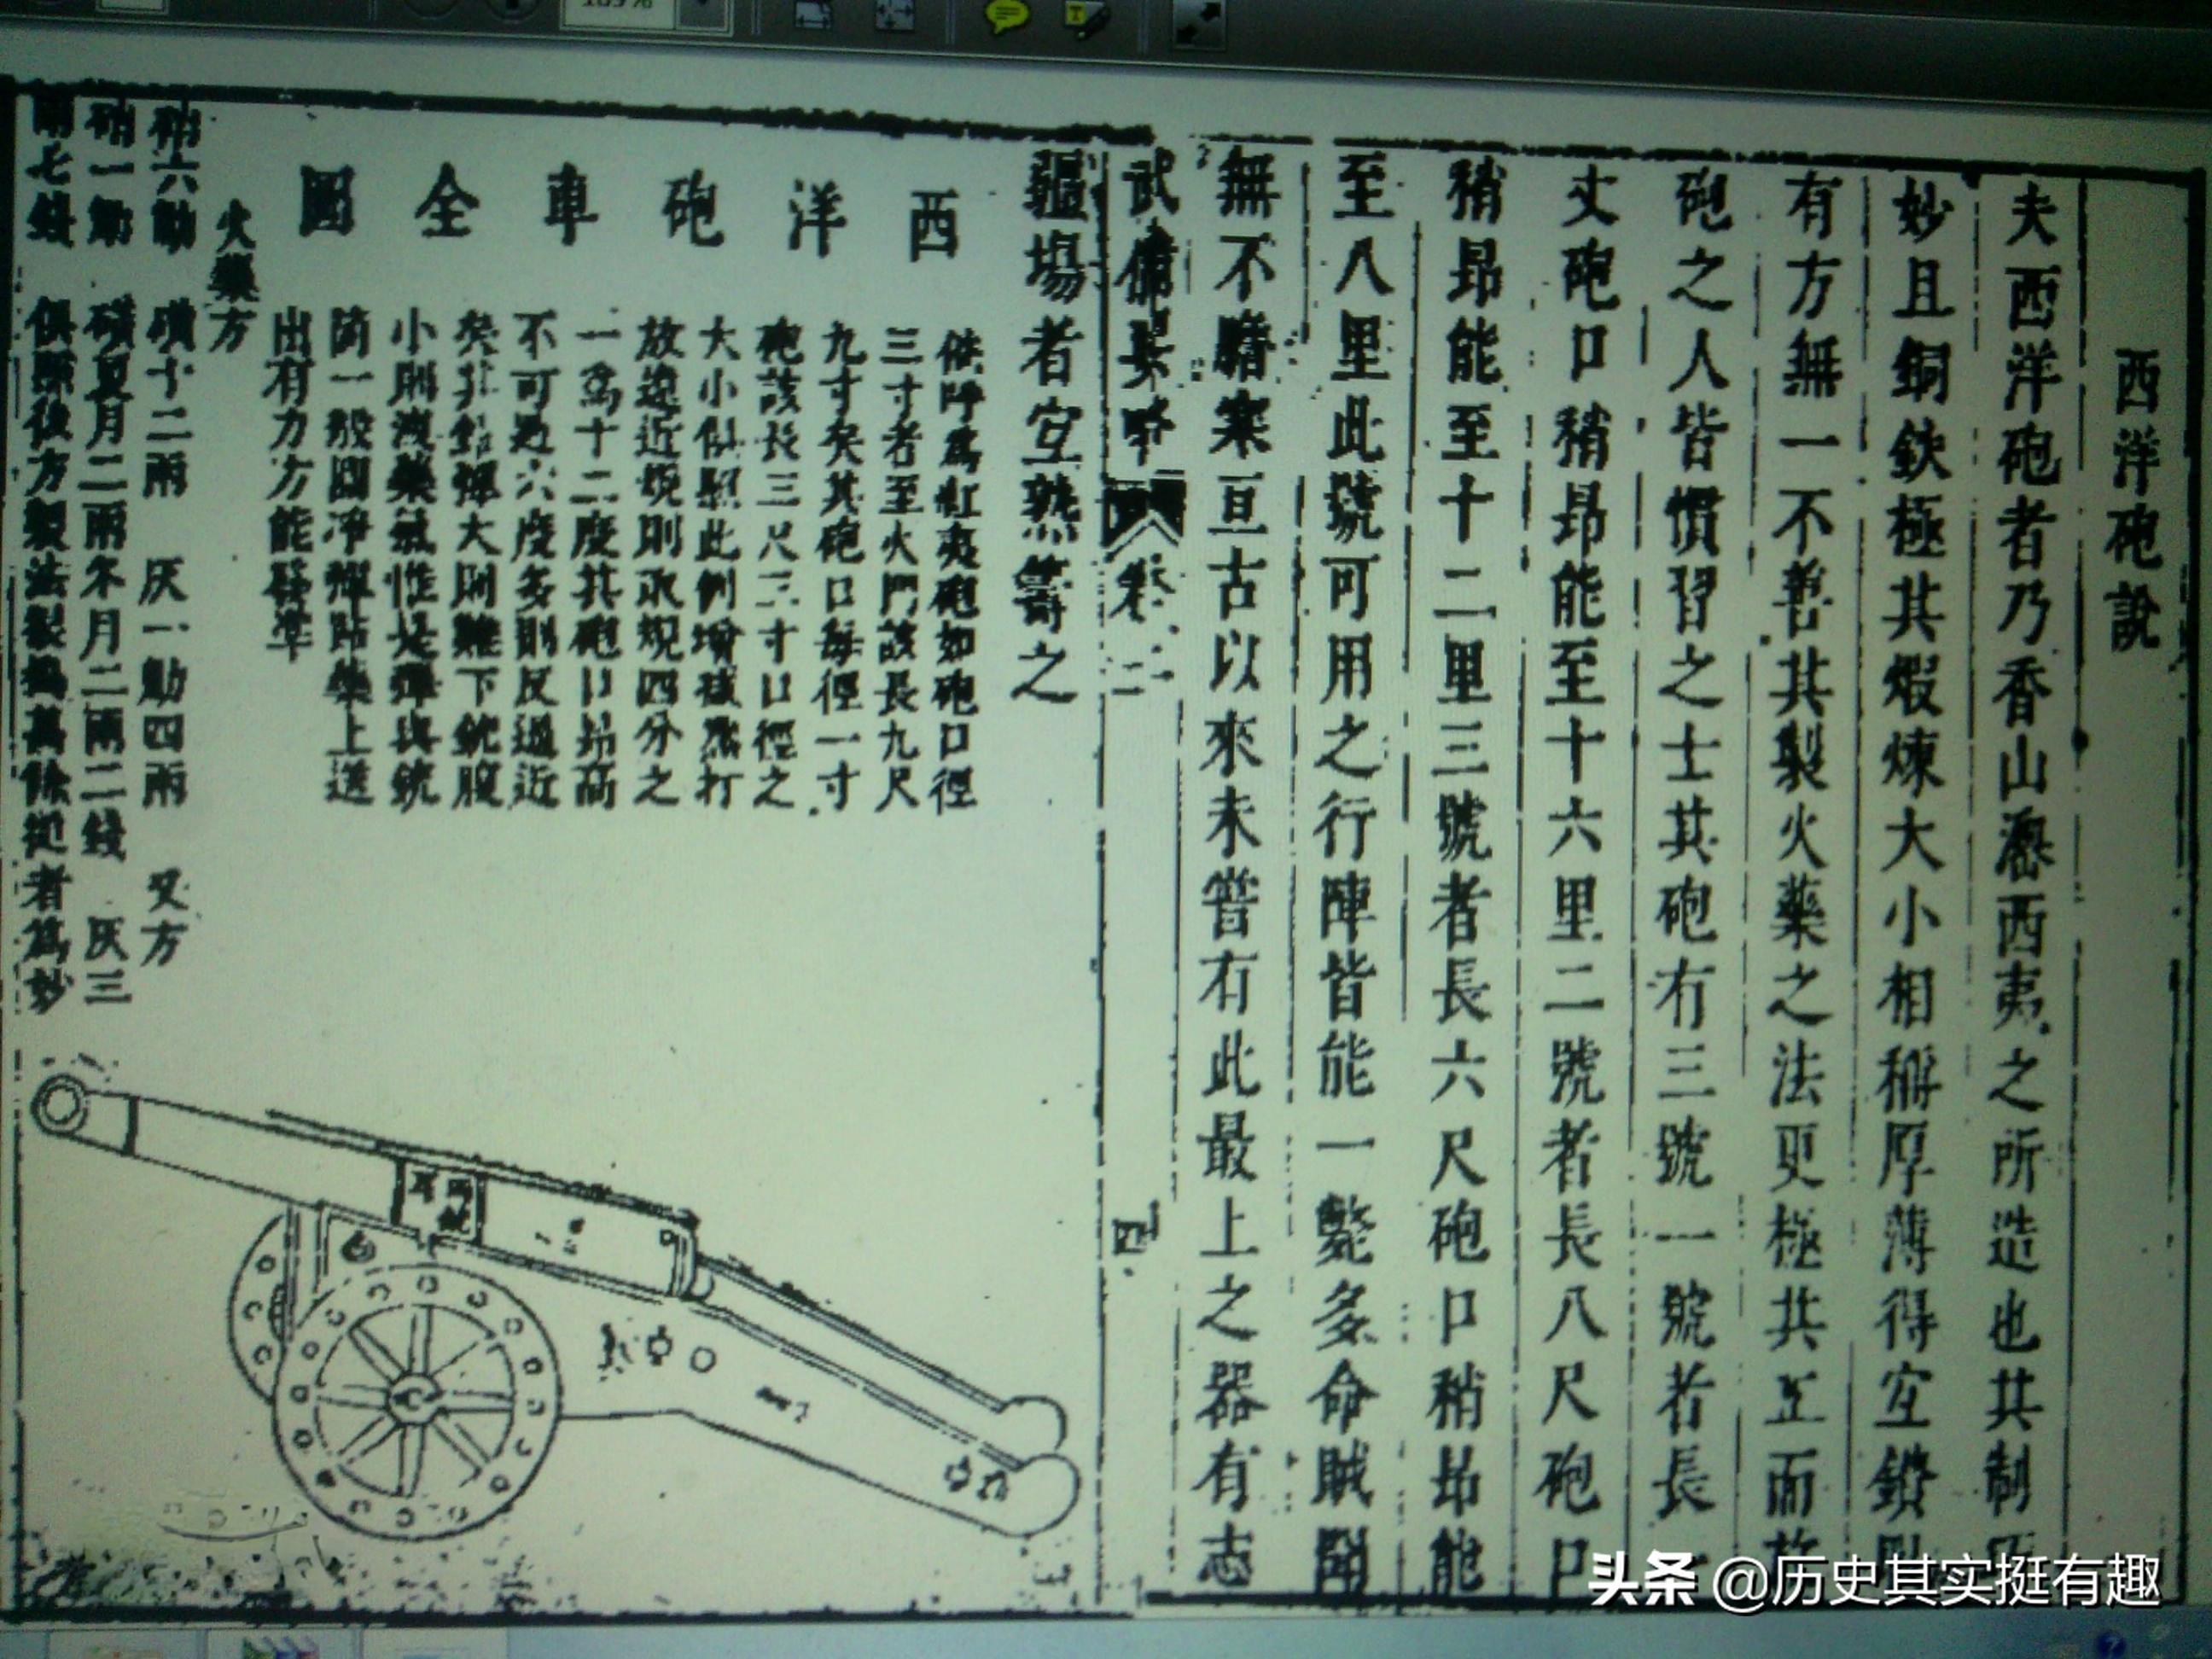 西洋砲說
夫西洋砲者乃香山澳西夷之所造也其制
妙且銅鉄極其煆煉大小相稱厚薄得宜鑽
有方無一不善其製火藥之法更極其工而
砲之人皆慣習之士其砲有三號一號者長
丈砲口稍昂能至十六里二號者長八尺砲口
稍昂能至十二里三號者長六尺砲口稍昂能
至八里此號可用之行陣皆能一斃多命賊聞
無不膽寒亘古以來未嘗有此最上之器有志
武備 卷二 四
疆場者宜熟籌之
西洋砲車全圖
俗呼爲紅夷砲如砲口徑
三寸者至火門該長九尺
九寸矣其砲口每徑一寸
砲該長三尺三寸口徑之
大小俱照此例增減然打
放遠近規則承規四分之
一爲十二度其砲口昂高
不可過六度多則反過近
矣其鉛彈大則難下銃腹
小則洩藥氣惟是彈與銃
筒一般圓淨彈貼藥上送
出有力方能發準
火藥方
硝六觔 磺十二兩 灰一觔四兩 又方
硝一觔 磺夏月二兩冬月二兩二錢 灰三
兩七錢 俱照後方製法製搗萬餘從者爲妙
头条 @历史其实挺有趣